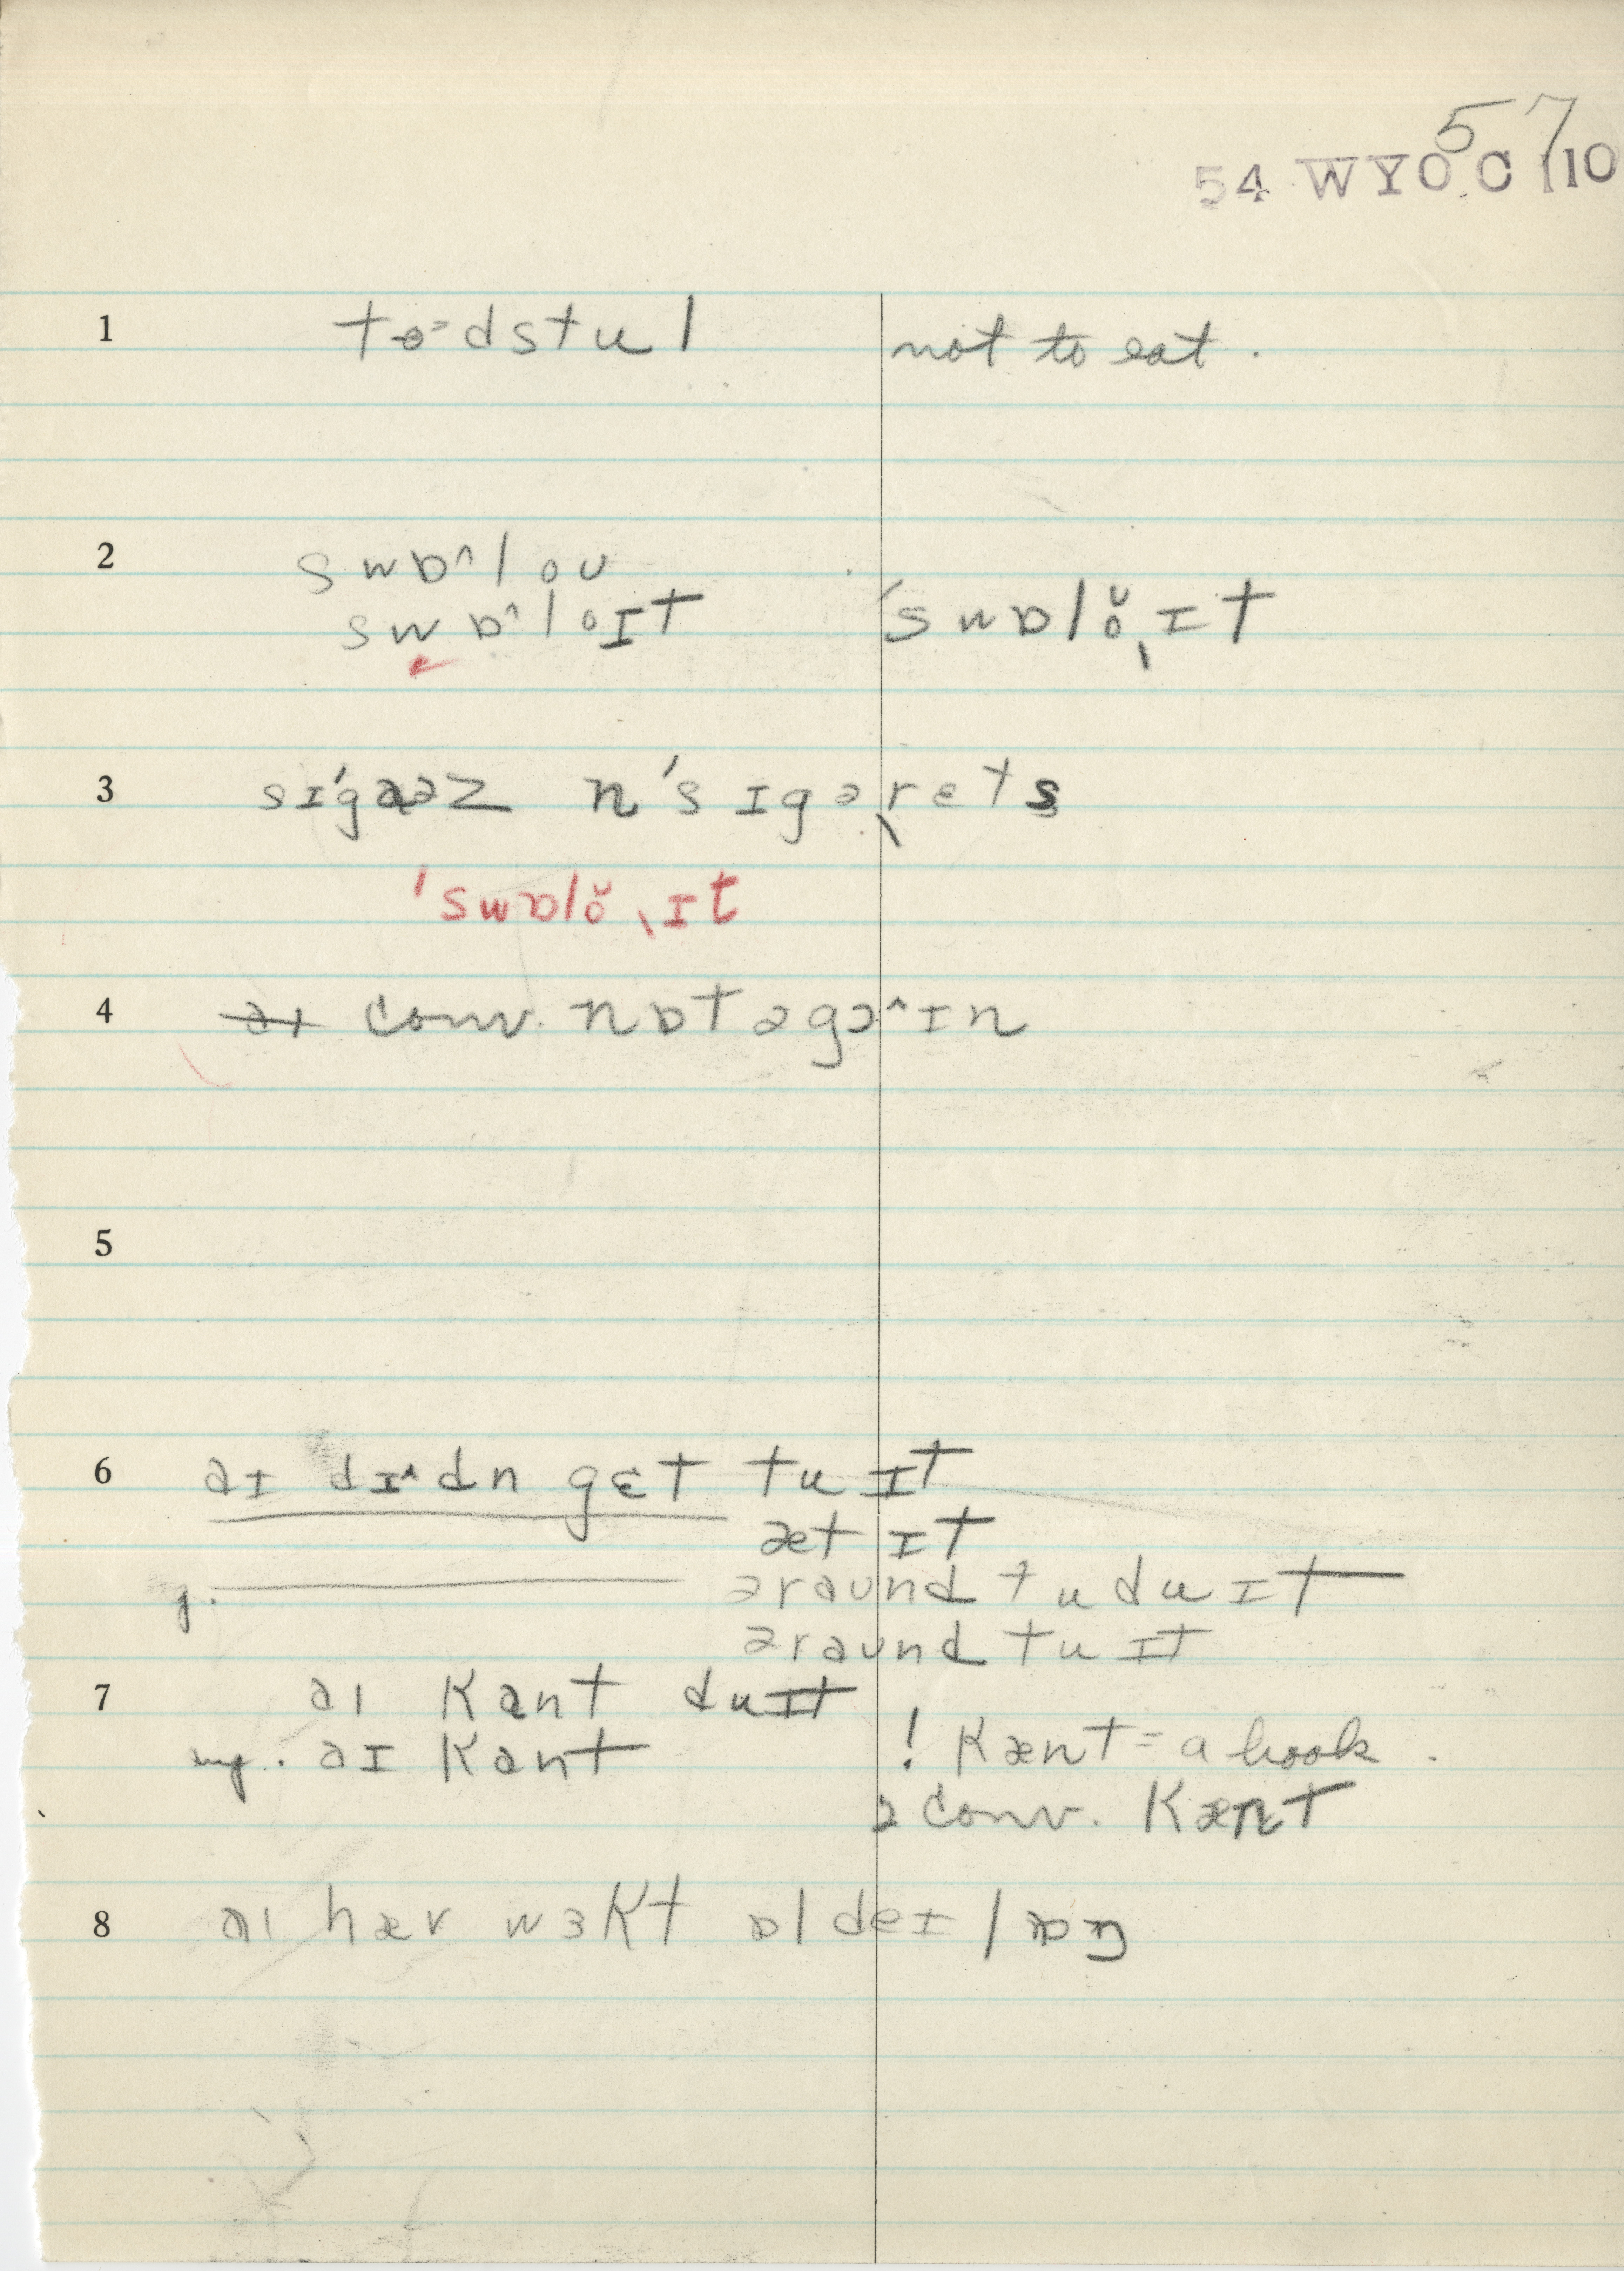 57
54 WYO C 110
1 to˗dstul not to eat.
2 swɒ^lou
swɒ^loɪt 'swɒlŏˌɪt
3 sɪ'gaəz n 'sɪgəˌrets
'swɒlŏˌɪt
4 conv. nɒtəgə^ɪn
5
6 aɪ dɪ^dn gɛt tu ɪt
æt ɪt
əraund tu du ɪt
əraund tu ɪt
7 aɪ kant duɪt
neg. aɪ kant ! kænt = a book.
2 conv. kænt
8 aɪ hæv wɜkt ɒl deɪ lɒŋ